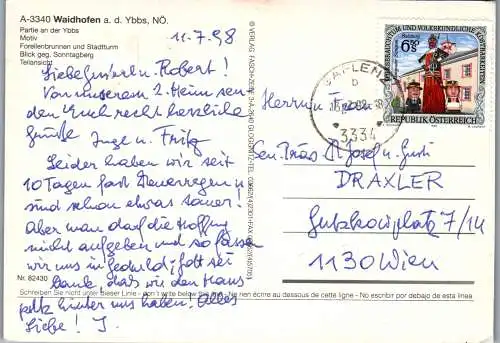 A-3340 Waidhofen a. d. Ybbs, NÖ.
Partie an der Ybbs
Motiv
Forellenbrunnen und Stadtturm
Blick geg. Sonntagberg
Teilansicht
11.7.98
Liebe Gusti u. Robert!
Von unserem 2. Heim senden
Euch recht herzliche
Grüße Inge u. Fritz
Leider haben wir seit
10 Tagen fast Dauerregen u.
sind schon etwas sauer!
Aber man darf die Hoffng
nicht aufgeben und so fassen
wir uns in Geduld. Gott sei
Dank, daß wir den Haus
putz hinter uns haben! Alles
Liebe! I.
Nr. 82430
Schreiben Sie nicht unter dieser Linie - don't write below the line - Ne rien écrire au dessous de cette ligne - No escribir por debajo de esta línea
© VERLAG
GAFLENZ
b
3334
VOLKSBRAUCHTUM UND VOLKSKUNDLICHE KOSTBARKEITEN
6.50
REPUBLIK ÖSTERREICH
Herrn u. Frau
Sen. Präs Josef u. Gusti
DRAXLER
Gutzkowplatz 7/14
1130 Wien